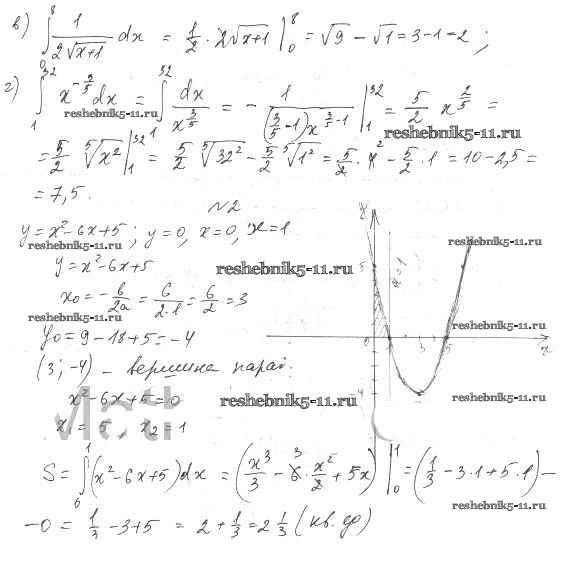 в) ∫₀⁸ 1/(2√(x+1)) dx = 1/2 · 2√(x+1) |₀⁸ = √9 − √1 = 3−1=2 ;
г) ∫₁³² x^(−3/5) dx = ∫₁³² dx/x^(3/5) = − 1/((3/5 −1)x^(3/5 −1)) |₁³² = 5/2 x^(2/5) =
reshebnik5-11.ru
reshebnik5-11.ru
= 5/2 ⁵√x² |₁³² = 5/2 ⁵√32² − 5/2 ⁵√1² = 5/2 · 4² − 5/2 · 1 = 10−2,5 =
= 7,5.
№2
y = x²−6x+5 ; y=0, x=0, x=1
reshebnik5-11.ru
reshebnik5-11.ru
y = x²−6x+5
reshebnik5-11.ru
x₀ = − b/2a = 6/(2·1) = 6/2 = 3
reshebnik5-11.ru
reshebnik5-11.ru
y₀ = 9 −18+5 = −4
(3; −4) − вершина параб.
x²−6x+5=0
reshebnik5-11.ru
reshebnik5-11.ru
x₁ = 5, x₂ = 1
Math
y
5
x=1
0
1
3
5
x
−4
S = ∫₀¹ (x²−6x+5)dx = (x³/3 − 6³ · x²/2 + 5x) |₀¹ = (1/3 − 3·1+5·1) −
reshebnik5-11.ru
−0 = 1/3 −3+5 = 2+1/3 = 2 1/3 (кв. ед)